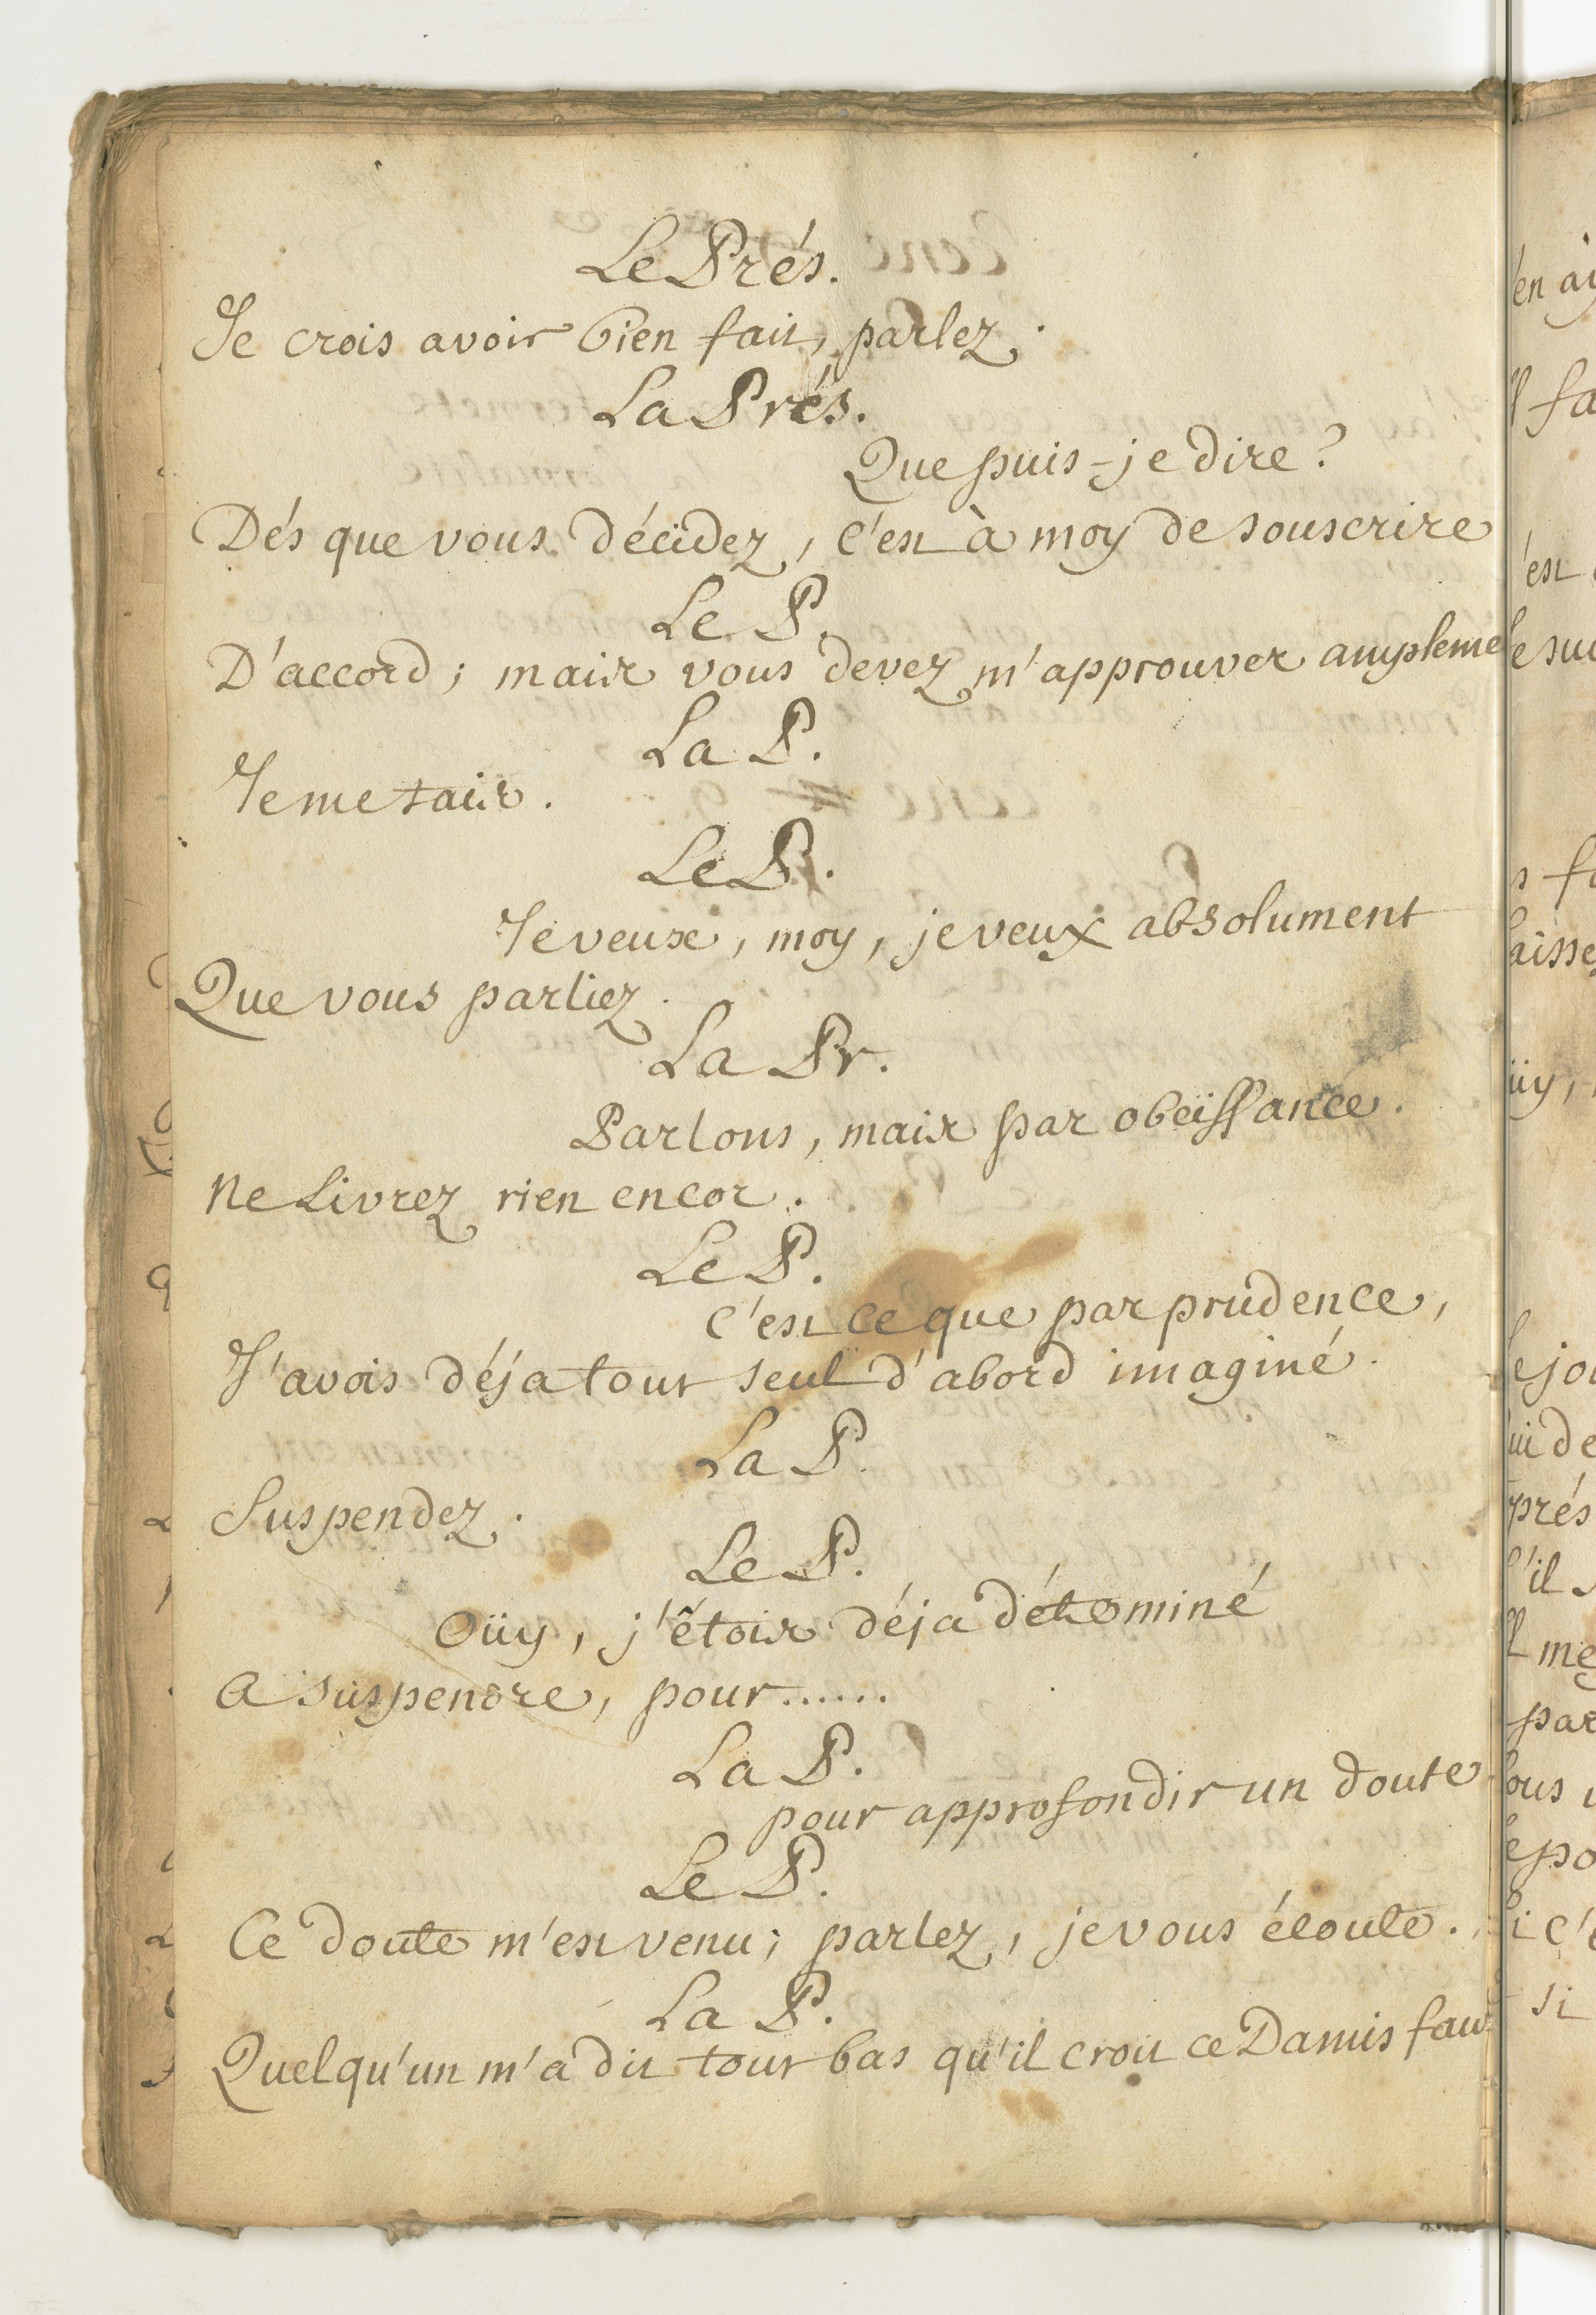 Le Prés.
Je crois avoir bien fait, parlez.
La Prés.
Que puis-je dire?
Dés que vous décidez, c'est à moy de souscrire
Le P.
D'accord; mais vous devez m'approuver ampleme
La P.
Je me tais.
Le P.
Je veux, moy, je veux absolument
Que vous parliez.
La Pr.
Parlons, mais par obeïssance.
Ne Livrez rien encor.
Le P.
C'est ce que par prudence,
J'avois déja tout seul d'abord imaginé.
La P.
Suspendez.
Le P.
Oüy, j'étois déja déterminé
A suspendre, pour......
La P.
pour approfondir un doute
Le P.
Ce doute m'est venu; parlez, je vous écoute.
La P.
Quelqu'un m'a dit tout bas qu'il croit ce Damis faux